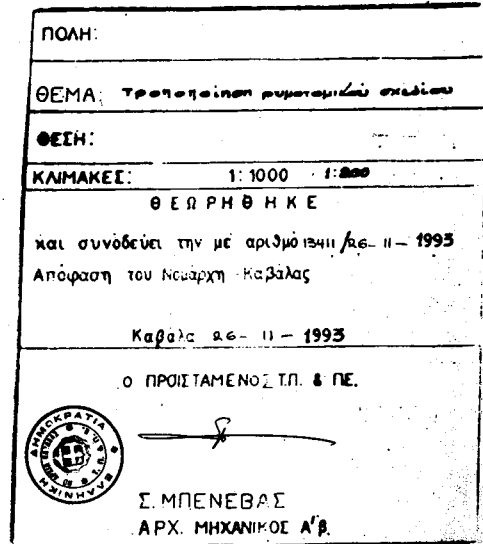 ΠΟΛΗ:
ΘΕΜΑ: Τροποποίηση ρυμοτομικού σχεδίου
ΘΕΣΗ:
ΚΛΙΜΑΚΕΣ: 1:1000 1:200
ΘΕΩΡΗΘΗΚΕ
και συνοδεύει την με αριθμό 13411/26-11-1993
Απόφαση του Νομάρχη Καβάλας
Καβάλα 26-11-1993
Ο ΠΡΟΙΣΤΑΜΕΝΟΣ Τ.Π. & ΠΕ.
ΕΛΛΗΝΙΚΗ ΔΗΜΟΚΡΑΤΙΑ
Σ. ΜΠΕΝΕΒΑΣ
ΑΡΧ. ΜΗΧΑΝΙΚΟΣ Α'β.